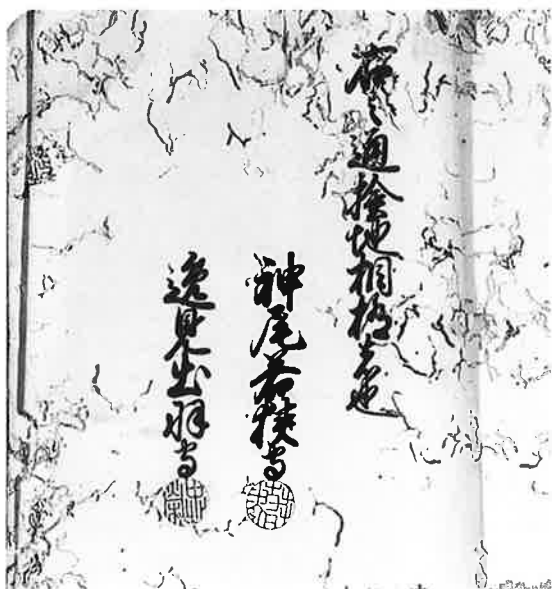 右之通検地相極者也
神尾若狭守
逸見出羽守